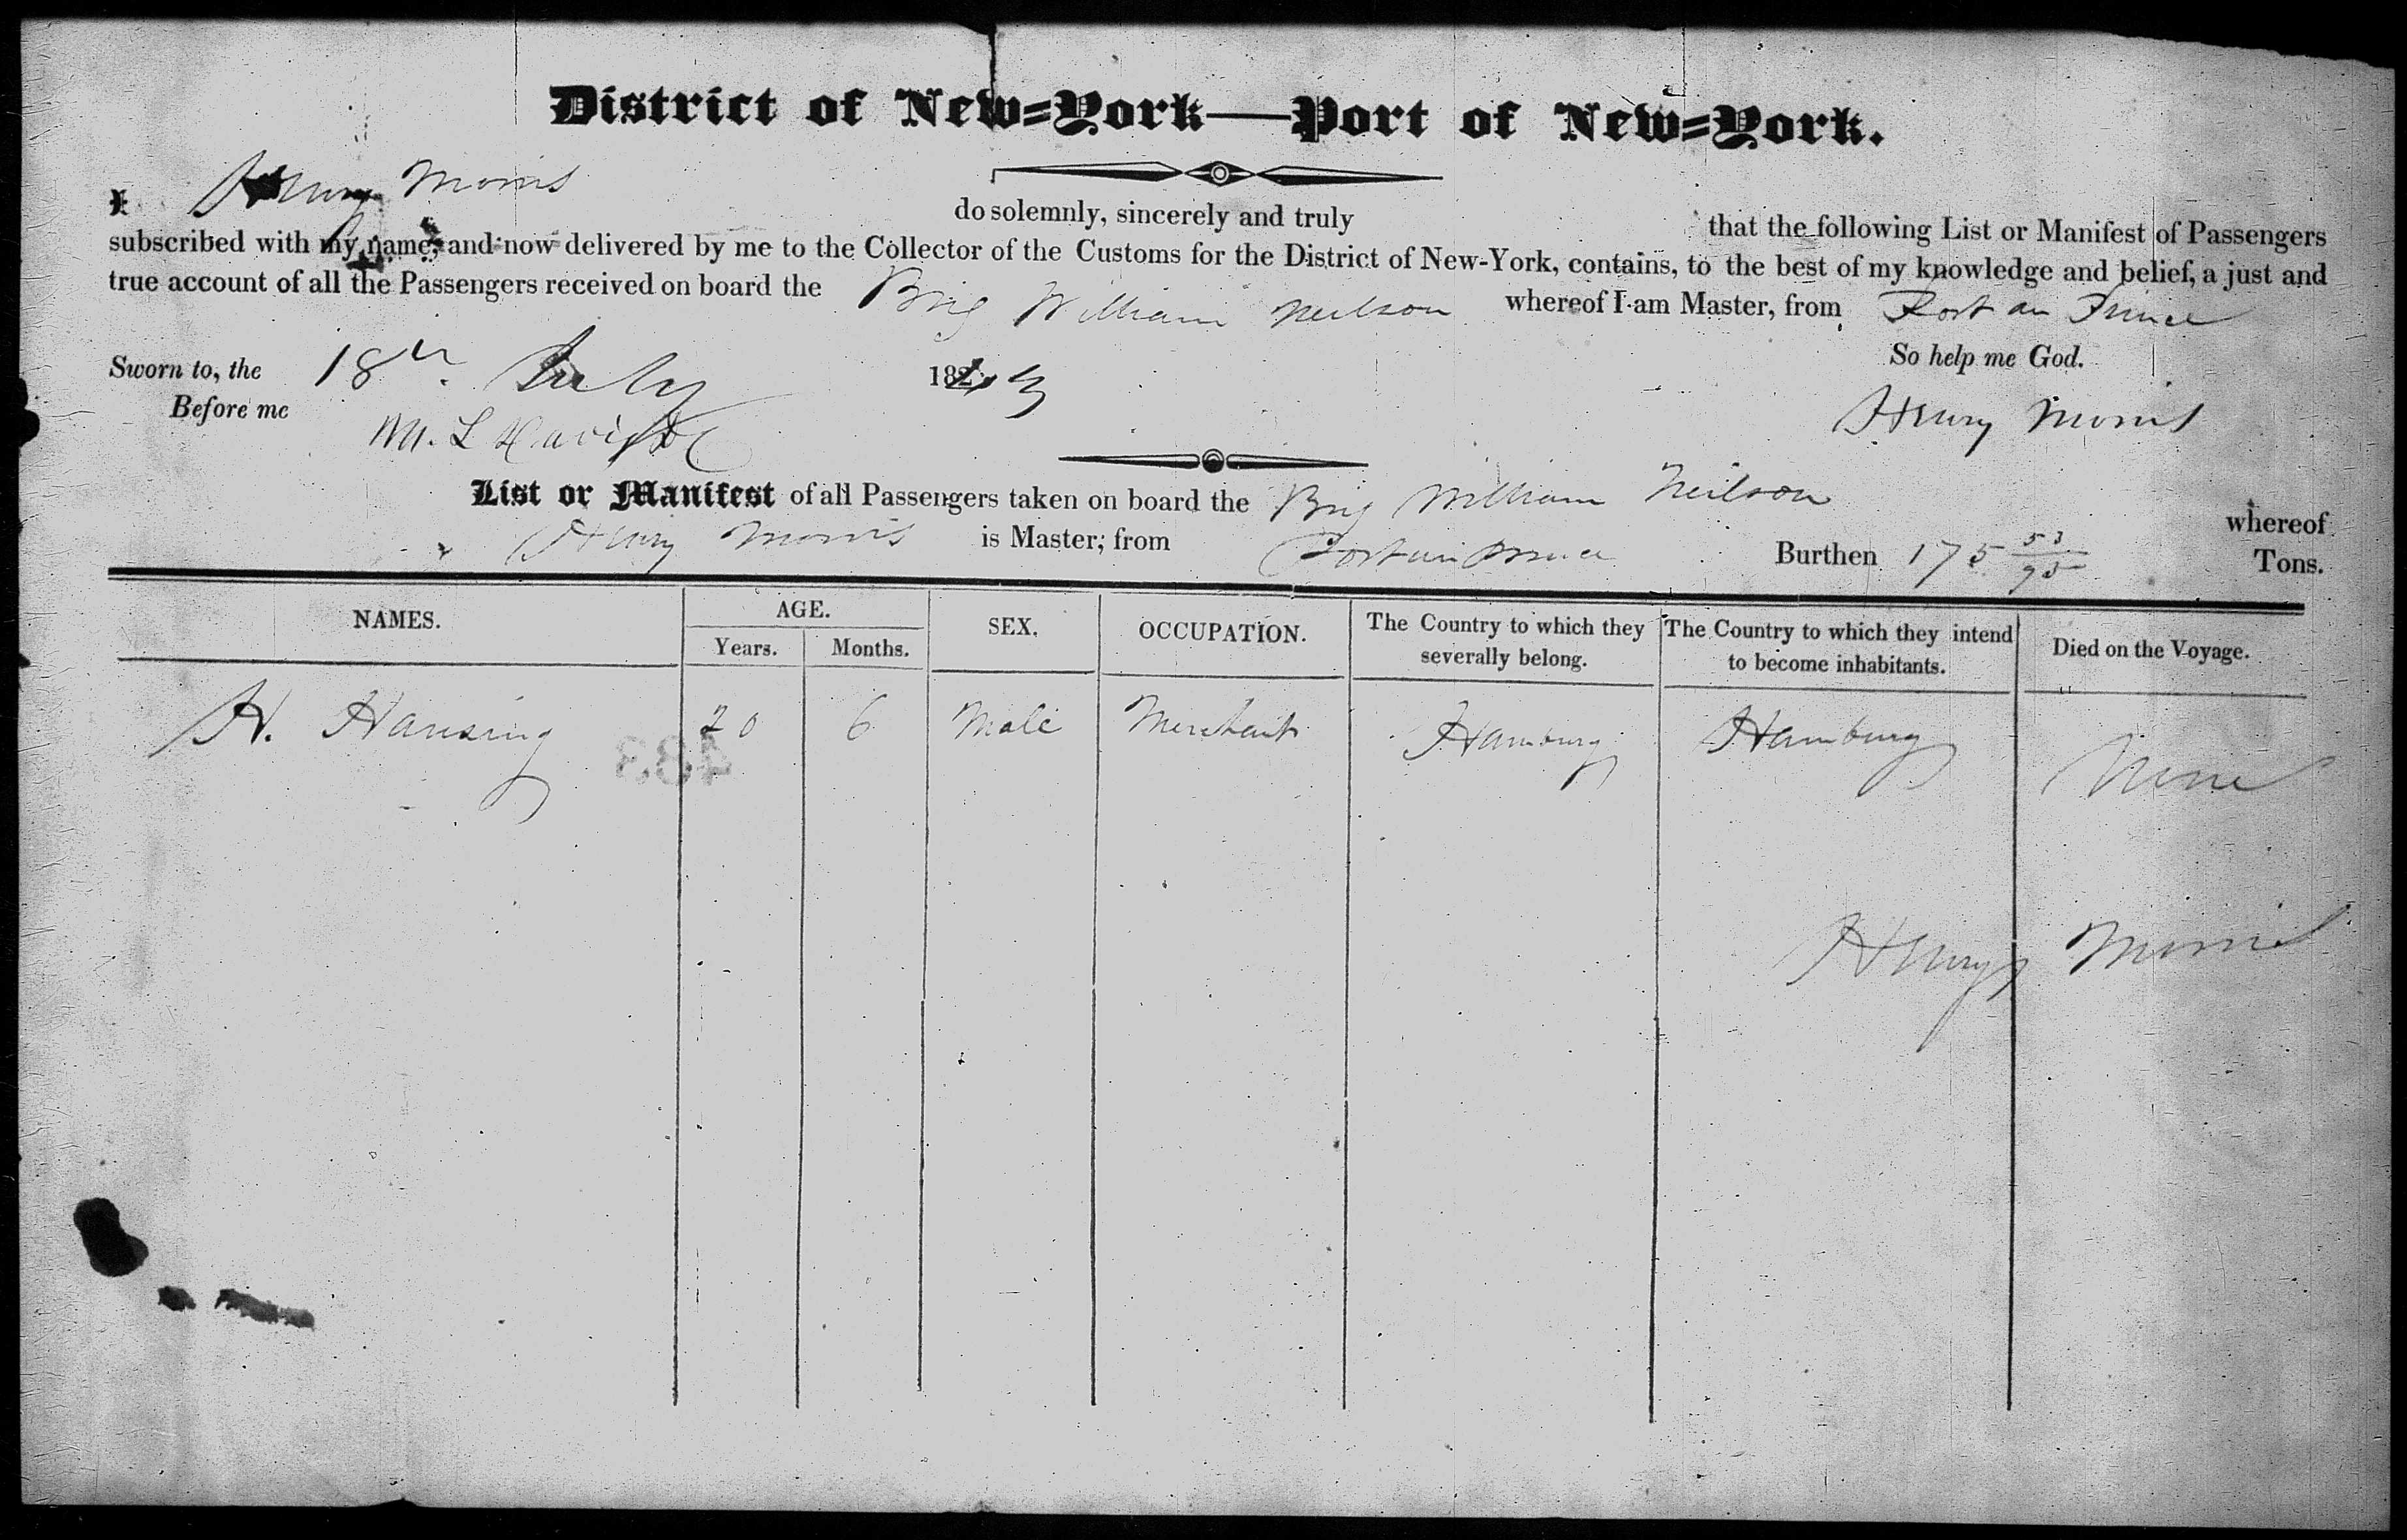 District of New=York—Port of New=York.
I Henry Morris do solemnly, sincerely and truly that the following List or Manifest of Passengers
subscribed with my name, and now delivered by me to the Collector of the Customs for the District of New-York, contains, to the best of my knowledge and belief, a just and
true account of all the Passengers received on board the Brig William Neilson whereof I am Master, from Port au Prince
So help me God.
Sworn to, the 18th July 182
Before me
Henry Morris
List or Manifest of all Passengers taken on board the Brig William Neilson whereof
Henry Morris is Master, from Port au Prince Burthen 175 53/95 Tons.
NAMES. AGE. Years. Months. SEX. OCCUPATION. The Country to which they severally belong. The Country to which they intend to become inhabitants. Died on the Voyage.
H. Hansing 20 6 Male Merchant Hamburg Hamburg None
433
Henry Morris